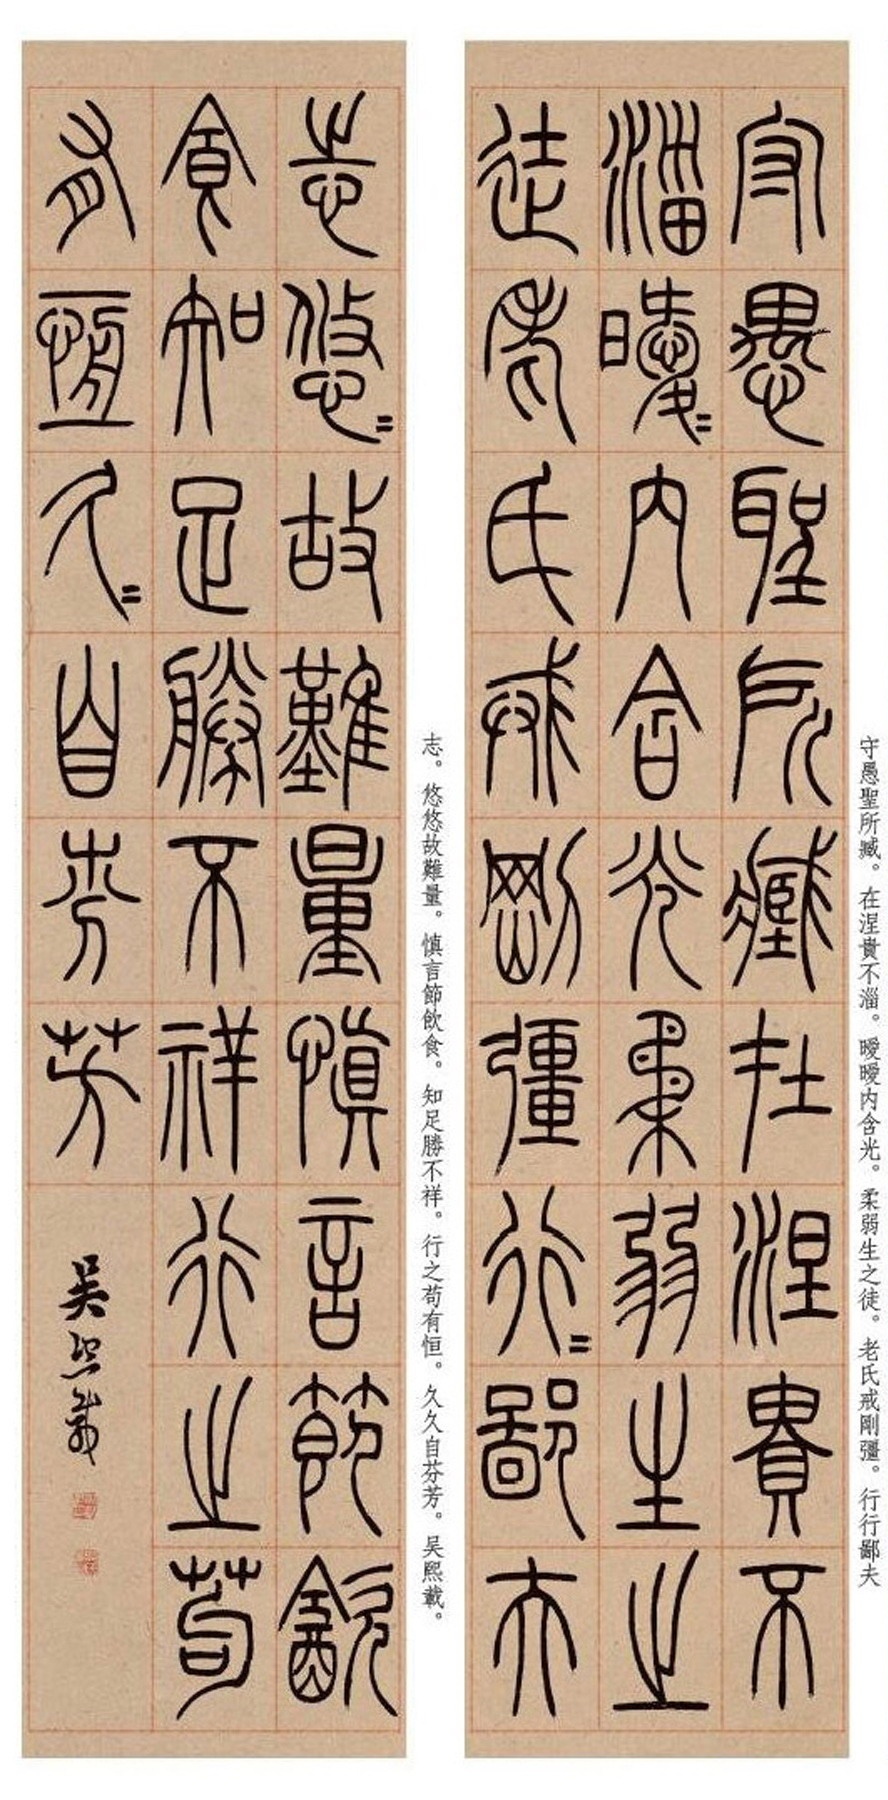 守愚聖所臧。在涅貴不淄。曖曖内含光。柔弱生之徒。老氏戒剛彊。行行鄙夫
守愚聖所臧在涅貴不
淄曖〻内含光柔弱生之
徒老氏戒剛彊行〻鄙夫
志。悠悠故難量。慎言節飲食。知足勝不祥。行之苟有恒。久久自芬芳。吴熙載。
志悠〻故難量慎言節飲
食知足勝不祥行之苟
有恆久〻自芬芳
吳熙載